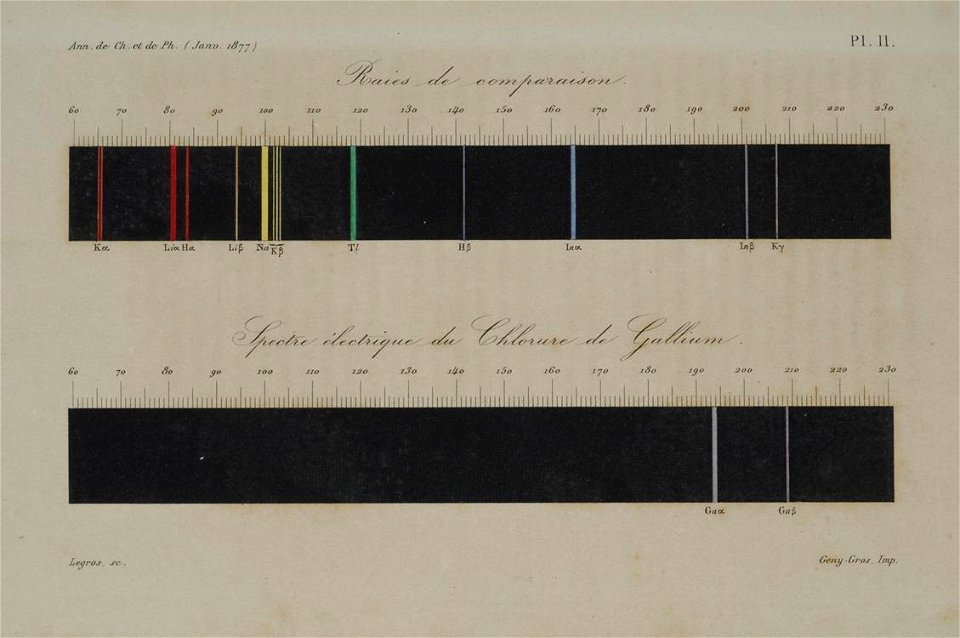 Ann. de Ch. et de Ph. (Janv. 1877)
Pl. II.
Raies de comparaison.
60 70 80 90 100 110 120 130 140 150 160 170 180 190 200 210 220 230
Kα Liα Hα Liβ Na Kβ Tl Hβ Inα Inβ Kγ
Spectre électrique du Chlorure de Gallium.
60 70 80 90 100 110 120 130 140 150 160 170 180 190 200 210 220 230
Gaα Gaβ
Legros, sc.
Geny-Gros Imp.